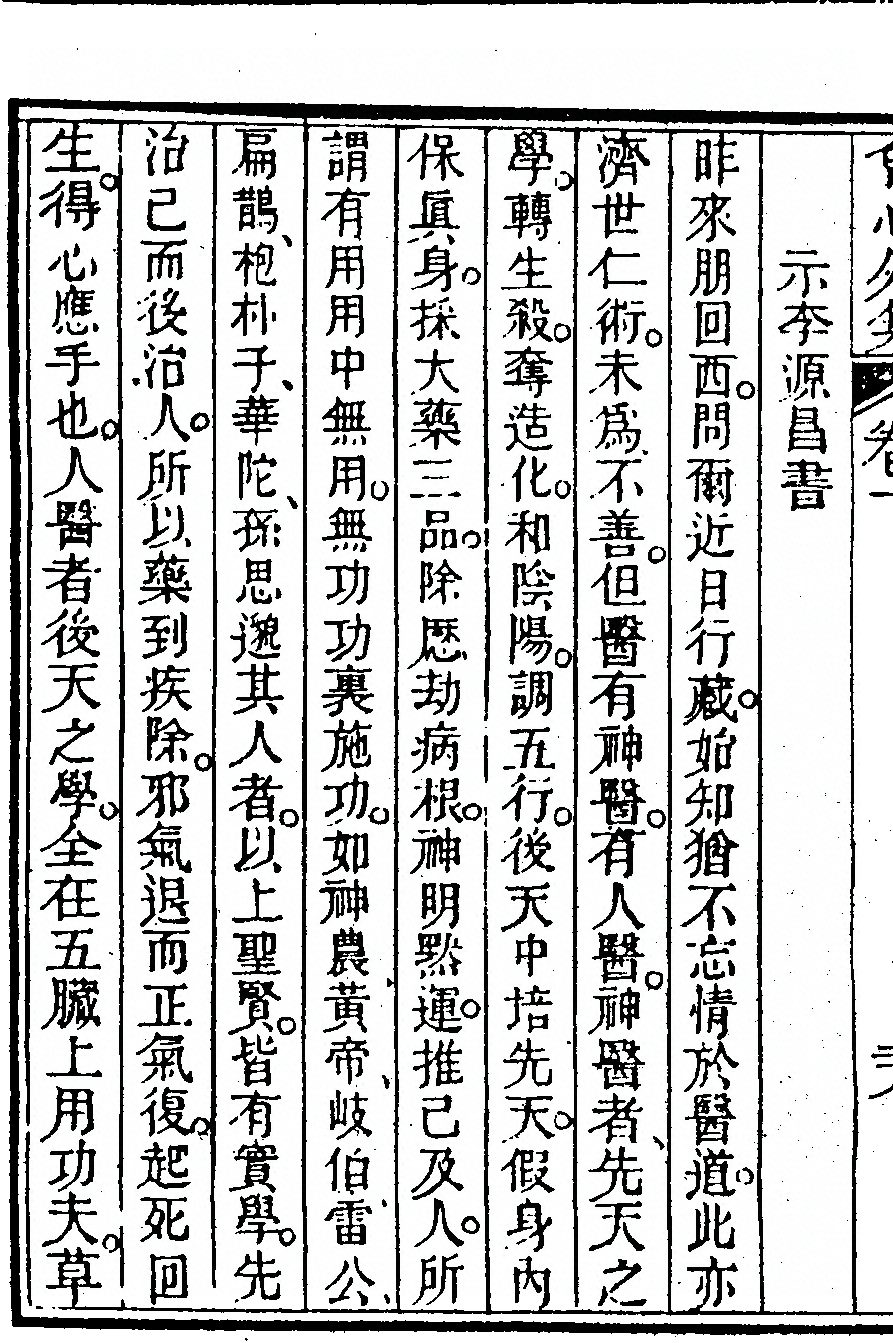 示李源昌書
昨來朋回西。問爾近日行藏。始知猶不忘情於醫道。此亦
濟世仁術。未爲不善。但醫有神醫。有人醫。神醫者、先天之
學。轉生殺。奪造化。和陰陽。調五行。後天中培先天。假身內
保眞身。採大藥三品。除歷劫病根。神明默運。推己及人。所
謂有用用中無用。無功功裏施功。如神農黃帝、岐伯、雷公、
扁鵲、枹朴子、華陀、孫思邈其人者。以上聖賢。皆有實學。先
治己而後治人。所以藥到疾除。邪氣退而正氣復。起死回
生。得心應手也。人醫者後天之學。全在五臟上用功夫。草